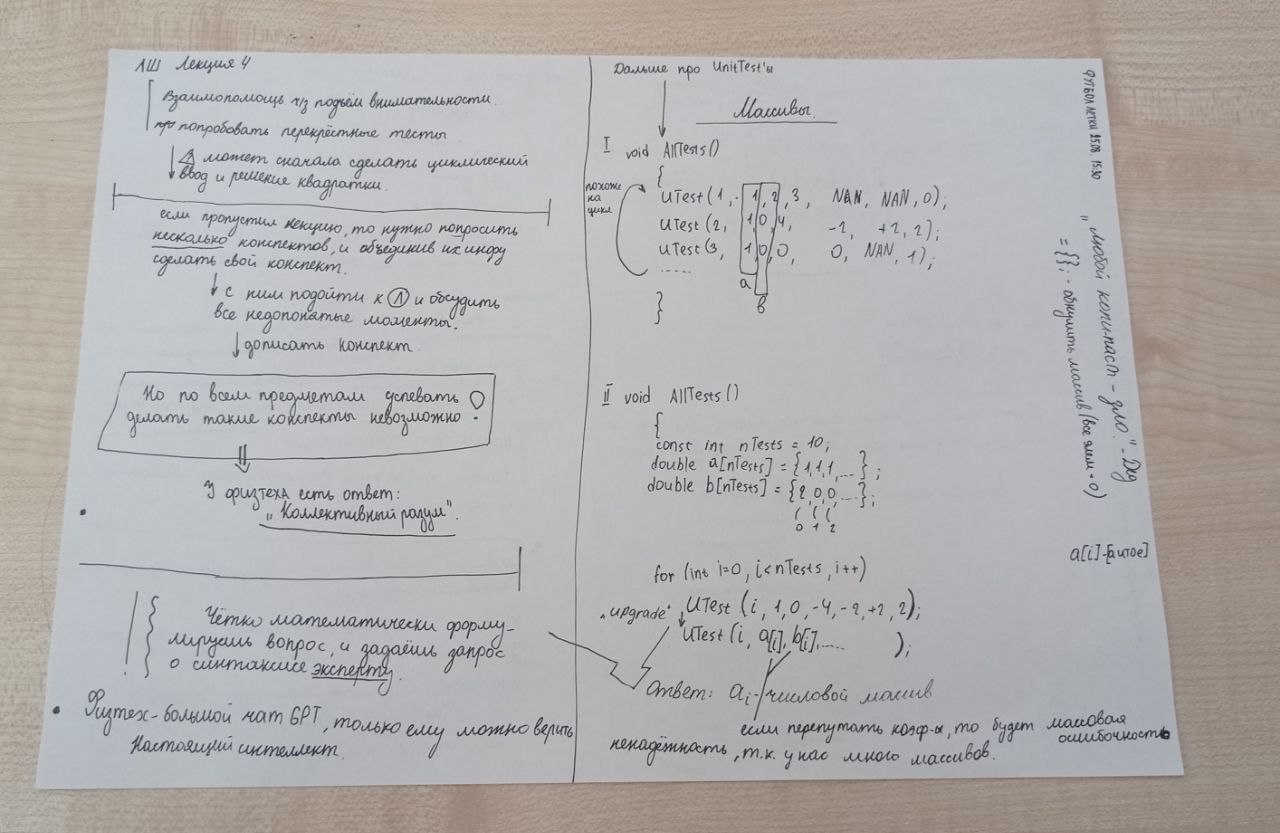 ЛШ Лекция 4
Взаимопомощь ч/з подъём внимательности.
попробовать перекрёстные тесты
может сначала сделать циклический
ввод и решение квадратки.
если пропустил лекцию, то нужно попросить
несколько конспектов, и объединив их инфу
сделать свой конспект.
с ним подойти к Л и обсудить
все недопонятые моменты.
дописать конспект.
Но по всем предметам успевать
делать такие конспекты невозможно!
У физтеха есть ответ:
"Коллективный разум".
Чётко математически форму-
лируешь вопрос, и задаёшь запрос
о синтаксисе эксперту.
Физтех - большой чат GPT, только ему можно верить
Настоящий интеллект.
Дальше про UnitTest'ы
Массивы.
I void AllTests()
{
похоже
на
цикл
UTest(1, -1, 2, 3, NAN, NAN, 0);
UTest(2, 1, 0, 4, -2, +2, 2);
UTest(3, 1, 0, 0, 0, NAN, 1);
......
a
b
}
II void AllTests()
{
const int nTests = 10;
double a[nTests] = {1,1,1,...};
double b[nTests] = {2,0,0,...};
0 1 2
for (int i=0, i<nTests, i++)
"upgrade" UTest (i, 1, 0, -4, -2, +2, 2);
UTest (i, a[i], b[i],...... );
Ответ: ai - числовой массив
если перепутать коэф-ы, то будет массовая
ошибочность
ненадёжность, т.к. у нас много массивов.
ФУТБОЛ ЛЕТКИ 25.08. 15:30
"Любой копи-паст - зло." - Дед
= {}; - обнулить массив (все элем = 0)
a[i] - [а итое]